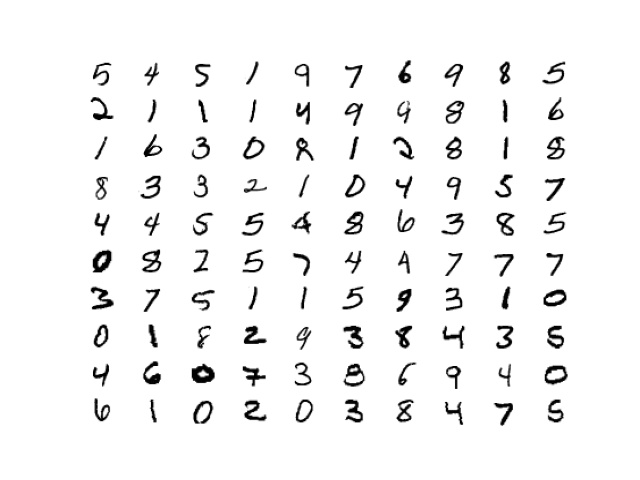 5 4 5 1 9 7 6 9 8 5
2 1 1 1 4 9 9 8 1 6
1 6 3 0 8 1 2 8 1 8
8 3 3 2 1 0 4 9 5 7
4 4 5 5 4 8 6 3 8 5
0 8 2 5 7 4 4 7 7 7
3 7 5 1 1 5 9 3 1 0
0 1 8 2 9 3 8 4 3 5
4 6 0 7 3 8 6 9 4 0
6 1 0 2 0 3 8 4 7 5